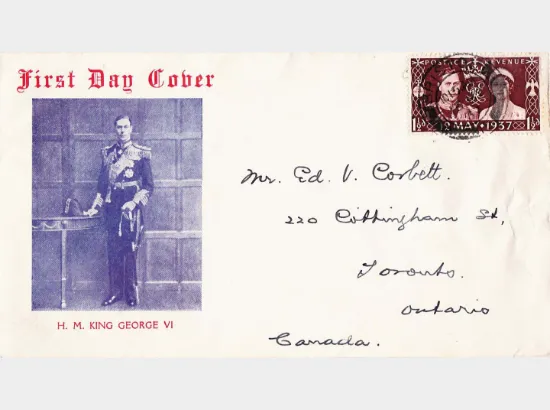 First Day Cover
POSTAGE REVENUE
MAY · 1937
1½D 1½D
Mr. Ed. V. Corbett.
220 Cottingham St,
Toronto.
Ontario
Canada.
H. M. KING GEORGE VI